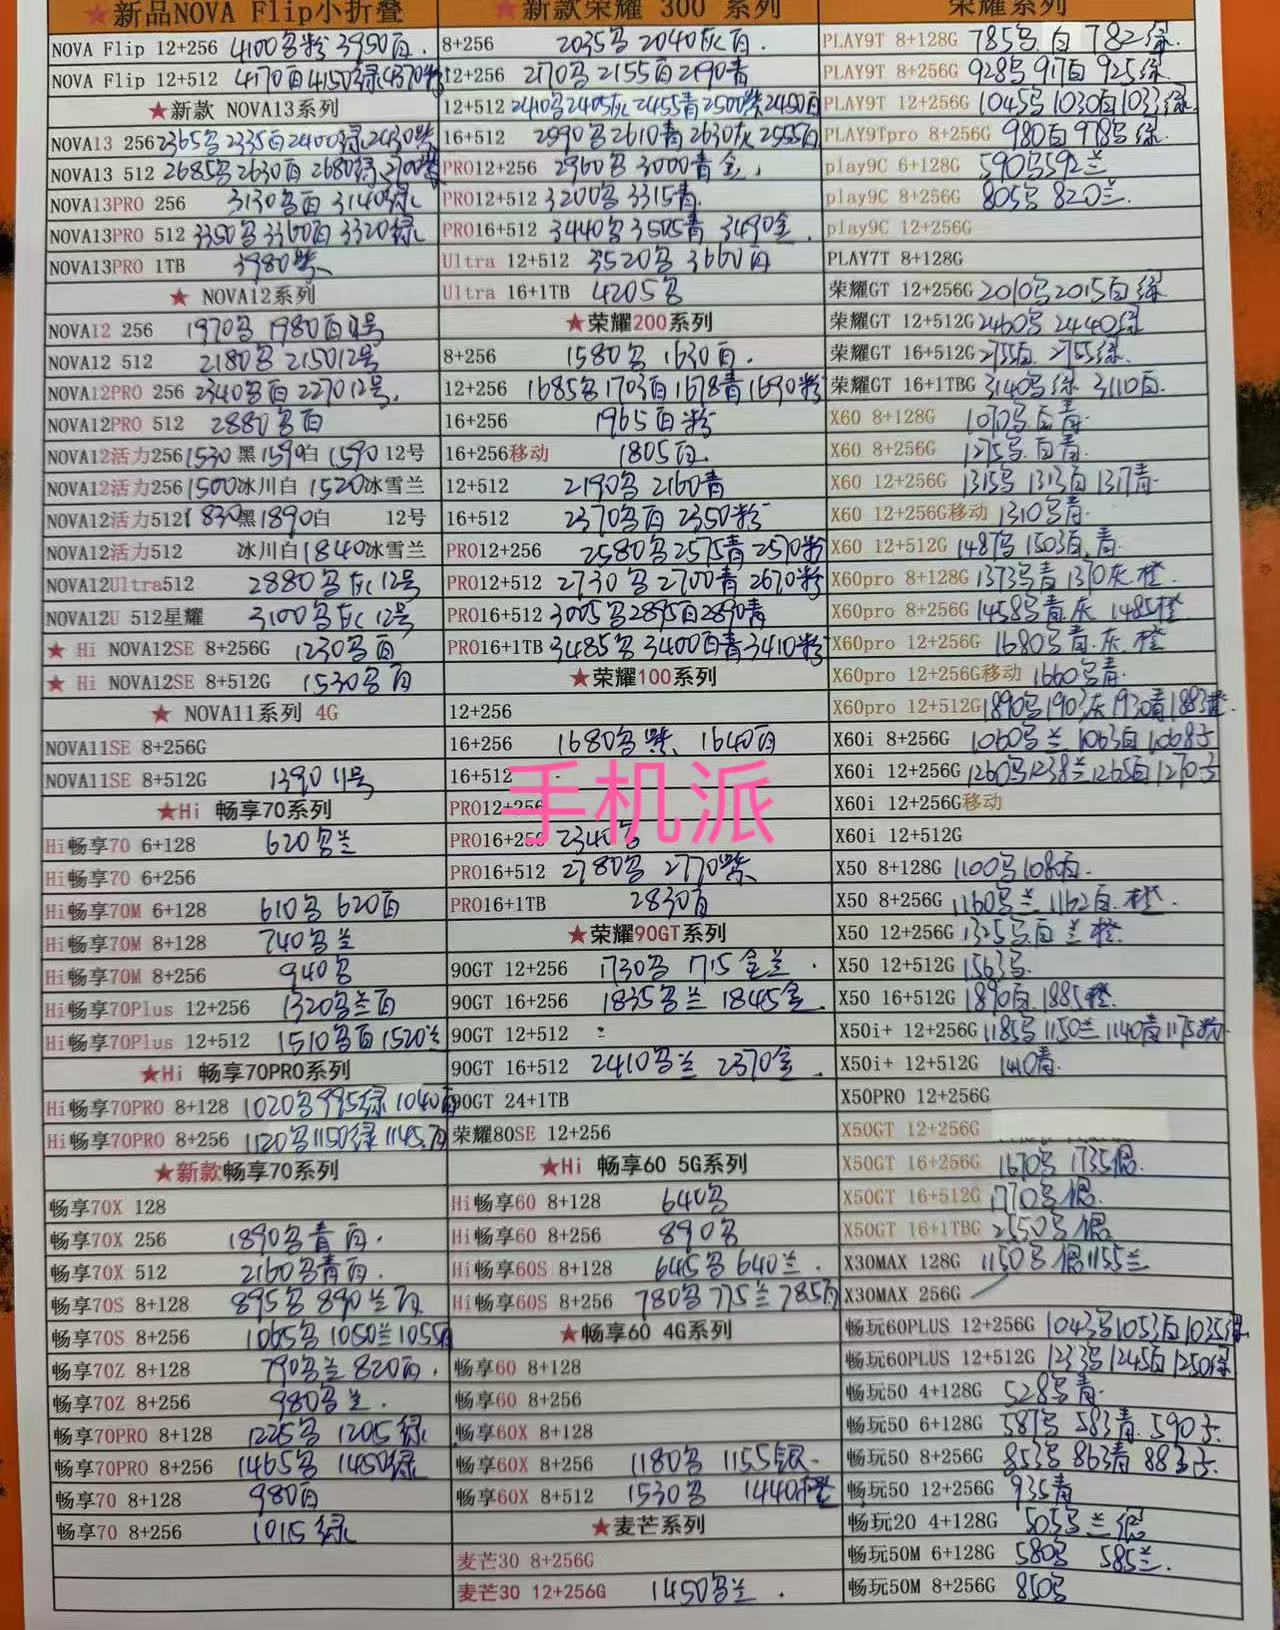 ★新品NOVA Flip小折叠
NOVA Flip 12+256 4100名粉 3950白.
NOVA Flip 12+512 4170白4150绿4370粉
★新款 NOVA13系列
NOVA13 256 2365名2335白2400绿2430紫
NOVA13 512 2685名2630白2680绿2700紫
NOVA13PRO 256 3130名白 3140绿
NOVA13PRO 512 3350名3360白3320绿
NOVA13PRO 1TB 3980紫
★ NOVA12系列
NOVA12 256 1970名 1980白12号
NOVA12 512 2180名 215012号
NOVA12PRO 256 2340名白 227012号.
NOVA12PRO 512 2880名白
NOVA12活力256 1530黑1590白 1590 12号
NOVA12活力256 1500冰川白 1520冰雪兰
NOVA12活力512 1830黑1890白 12号
NOVA12活力512 冰川白1840冰雪兰
NOVA12Ultra512 2880名灰12号
NOVA12U 512星耀 3100名灰12号
★ Hi NOVA12SE 8+256G 1230名白
★ Hi NOVA12SE 8+512G 1530名白
★ NOVA11系列 4G
NOVA11SE 8+256G
NOVA11SE 8+512G 1390 11号
★Hi 畅享70系列
Hi畅享70 6+128 620名兰
Hi畅享70 6+256
Hi畅享70M 6+128 610名 620白
Hi畅享70M 8+128 740名兰
Hi畅享70M 8+256 940名
Hi畅享70Plus 12+256 1320名兰白
Hi畅享70Plus 12+512 1510名白1520兰
★Hi 畅享70PRO系列
Hi畅享70PRO 8+128 1020名995绿1040白
Hi畅享70PRO 8+256 1120名1150绿1145白
★新款畅享70系列
畅享70X 128
畅享70X 256 1890名青白.
畅享70X 512 2160名青白.
畅享70S 8+128 895名 890兰白
畅享70S 8+256 1065名1050兰1055白
畅享70Z 8+128 790名兰 820白.
畅享70Z 8+256 980名兰.
畅享70PRO 8+128 1225名 1205绿
畅享70PRO 8+256 1465名 1450绿
畅享70 8+128 980白
畅享70 8+256 1015绿
★新款荣耀 300 系列
8+256 2035名 2040灰白.
12+256 2170名 2155白2190青
12+512 2410名2405灰2455青2500紫2450白
16+512 2590名2610青2630灰2555白
PRO12+256 2960名 3000青金.
PRO12+512 3200名 3315青.
PRO16+512 3440名3505青 3490金.
Ultra 12+512 3520名 3660白
Ultra 16+1TB 4205名
★荣耀200系列
8+256 1580名 1630白.
12+256 1685名1703白1678青1690粉
16+256 1965白粉
16+256移动 1805白.
12+512 2190名 2160青
16+512 2370名白 2350粉
PRO12+256 2580名2575青2570粉
PRO12+512 2730名2700青2670粉
PRO16+512 3005名2895白2890青
PRO16+1TB 3485名3400白青3410粉
★荣耀100系列
12+256
16+256 1680名紫 1640白
16+512
手机派
PRO12+256
PRO16+256 2340名
PRO16+512 2780名 2770紫
PRO16+1TB 2830白
★荣耀90GT系列
90GT 12+256 1730名 1715金兰.
90GT 16+256 1835名兰 1845金.
90GT 12+512
90GT 16+512 2410名兰 2370金.
90GT 24+1TB
荣耀80SE 12+256
★Hi 畅享60 5G系列
Hi畅享60 8+128 640名
Hi畅享60 8+256 890名
Hi畅享60S 8+128 645名 640兰.
Hi畅享60S 8+256 780名775兰785白
★畅享60 4G系列
畅享60 8+128
畅享60 8+256
畅享60X 8+128
畅享60X 8+256 1180名 1155银.
畅享60X 8+512 1530名 1440橙
★麦芒系列
麦芒30 8+256G
麦芒30 12+256G 1450名兰.
荣耀系列
PLAY9T 8+128G 785名 白 782绿.
PLAY9T 8+256G 928名917白 925绿.
PLAY9T 12+256G 1045名1030白1033绿.
PLAY9Tpro 8+256G 980白978名绿.
play9C 6+128G 590名592兰
play9C 8+256G 805名820兰.
play9C 12+256G
PLAY7T 8+128G
荣耀GT 12+256G 2010名2015白绿
荣耀GT 12+512G 2460名 2440绿
荣耀GT 16+512G 2755白 2755绿.
荣耀GT 16+1TBG 3140名绿 3110白.
X60 8+128G 1070名白青.
X60 8+256G 1275名白青.
X60 12+256G 1315名1313白1317青
X60 12+256G移动 1310名青.
X60 12+512G 1487名1503白青.
X60pro 8+128G 1373名青1370灰橙.
X60pro 8+256G 1458名青灰 1485橙
X60pro 12+256G 1680名青.灰.橙
X60pro 12+256G移动 1660名青.
X60pro 12+512G 1890名1903灰1930青1883橙.
X60i 8+256G 1060名兰 1063白1068子
X60i 12+256G 1260名1238兰1265白1270子
X60i 12+256G移动
X60i 12+512G
X50 8+128G 1100名1080白.
X50 8+256G 1160名兰1162白.橙.
X50 12+256G 1325名白兰橙.
X50 12+512G 1563名.
X50 16+512G 1890白.1885橙.
X50i+ 12+256G 1185名1150兰1140青1175粉
X50i+ 12+512G 1410青.
X50PRO 12+256G
X50GT 12+256G
X50GT 16+256G 1670名 1735银.
X50GT 16+512G 1770名银.
X50GT 16+1TBG 2550名银
X30MAX 128G 1150名银1155兰
X30MAX 256G
畅玩60PLUS 12+256G 1043名1053白1035绿
畅玩60PLUS 12+512G 1233名1245白1250绿
畅玩50 4+128G 528名青.
畅玩50 6+128G 587名583青.590子.
畅玩50 8+256G 853名863青883子.
畅玩50 12+256G 935青
畅玩20 4+128G 505名兰银
畅玩50M 6+128G 580名 585兰.
畅玩50M 8+256G 850名